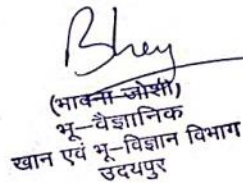 (भावना जोशी)
भू-वैज्ञानिक
खान एवं भू-विज्ञान विभाग
उदयपुर